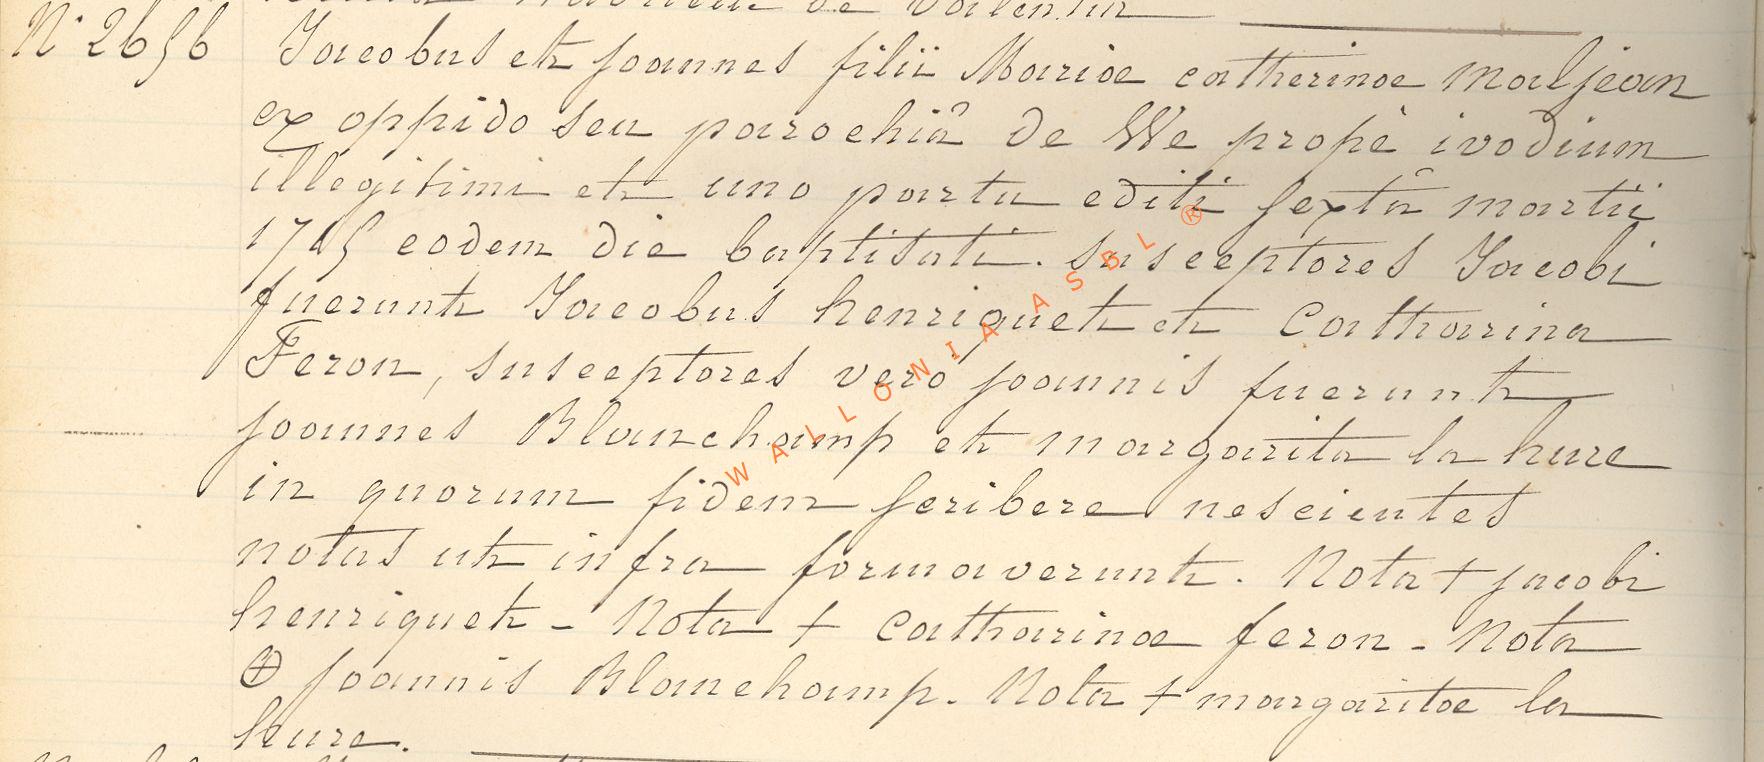 de Valentin
N° 2656 Jacobus et joannes filii Mariæ catherinæ maljean
ex oppido seu parochiâ de We propè ivodium
illegitimi et uno partu editi sextâ martii
1715 eodem die baptisati. susceptores Jacobi
fuerunt Jacobus henriquet et Catharina
Feron, susceptores vero joannis fuerunt
joannes Blanchamp et margarita la hure
in quorum fidem scribere nescientes
notas ut infra formaverunt. Nota + jacobi
henriquet - Nota + Catharinæ feron - Nota
⊕ joannis Blanchamp. Nota + margaritæ la
hure.
WALLONIA ASBL ®